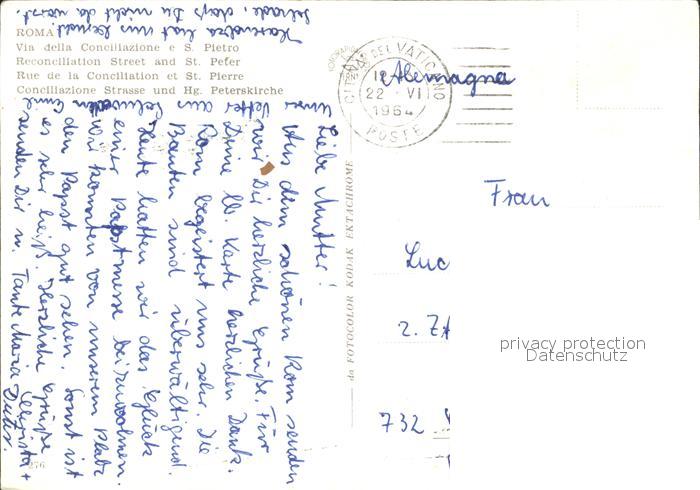 ROMA
Via della Conciliazione e S. Pietro
Reconciliation Street and St. Pefer
Rue de la Conciliation et St. Pierre
Conciliazione Strasse und Hg. Peterskirche
Liebe Mutter!
Aus dem schönen Rom senden
wir Dir herzliche Grüße. Für
Deine lb. Karte herzlichen Dank.
Rom begeistert uns sehr. Die
Bauten sind überwältigend.
Heute hatten wir das Glück
einer Papstmesse beizuwohnen.
Wir konnten von unserem Platz
den Papst gut sehen. Sonst ist
es sehr heiß. Herzliche Grüße
senden Dir u. Tante Maria
Dieter.
Unser Vetter aus
hat uns
Schade, daß Du nicht da warst.
276
da FOTOCOLOR KODAK EKTACHROME
CITTÀ DEL VATICANO
22 · VI
1964
POSTE
Alemagna
Frau
Luc
2. ZA
732
privacy protection
Datenschutz